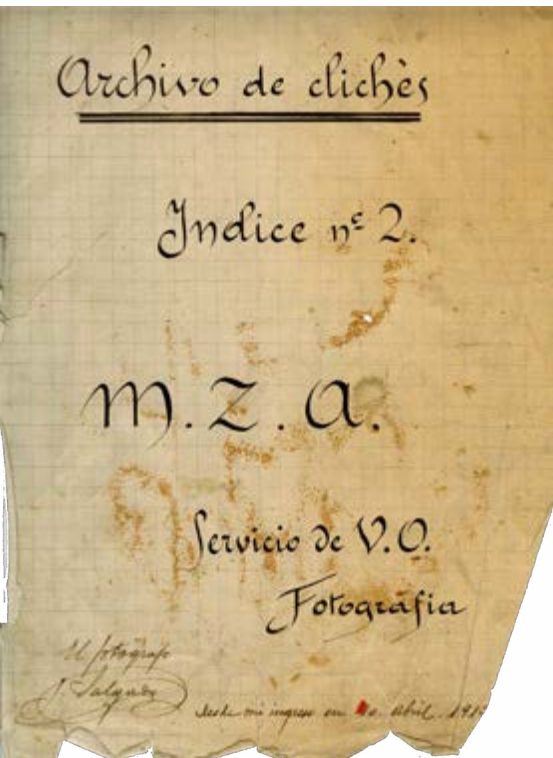 Archivo de clichès
Indice nº 2.
M. Z. A.
Servicio de V. O.
Fotografia
El fotografo
J. Salgado
desde mi ingreso en Abril